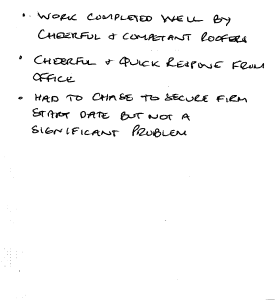 • WORK COMPLETED WELL BY
CHEERFUL & COMPETANT ROOFERS
• CHEERFUL & QUICK RESPONSE FROM
OFFICE
• HAD TO CHASE TO SECURE FIRM
START DATE BUT NOT A
SIGNIFICANT PROBLEM